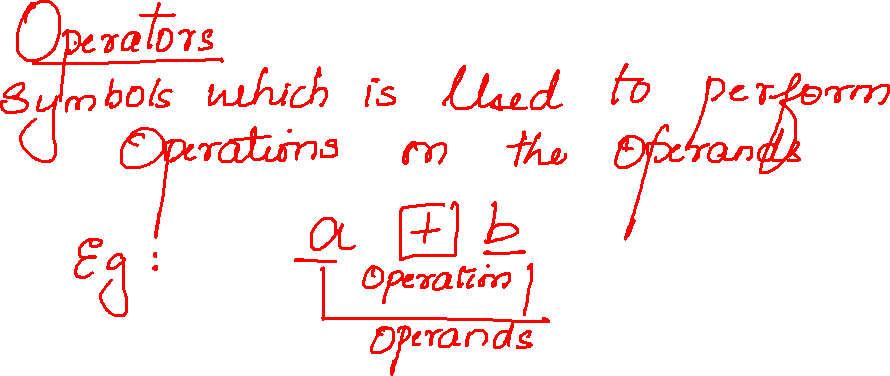 Operators
Symbols which is Used to perform
Operations on the Operands
Eg : a + b
Operation
Operands